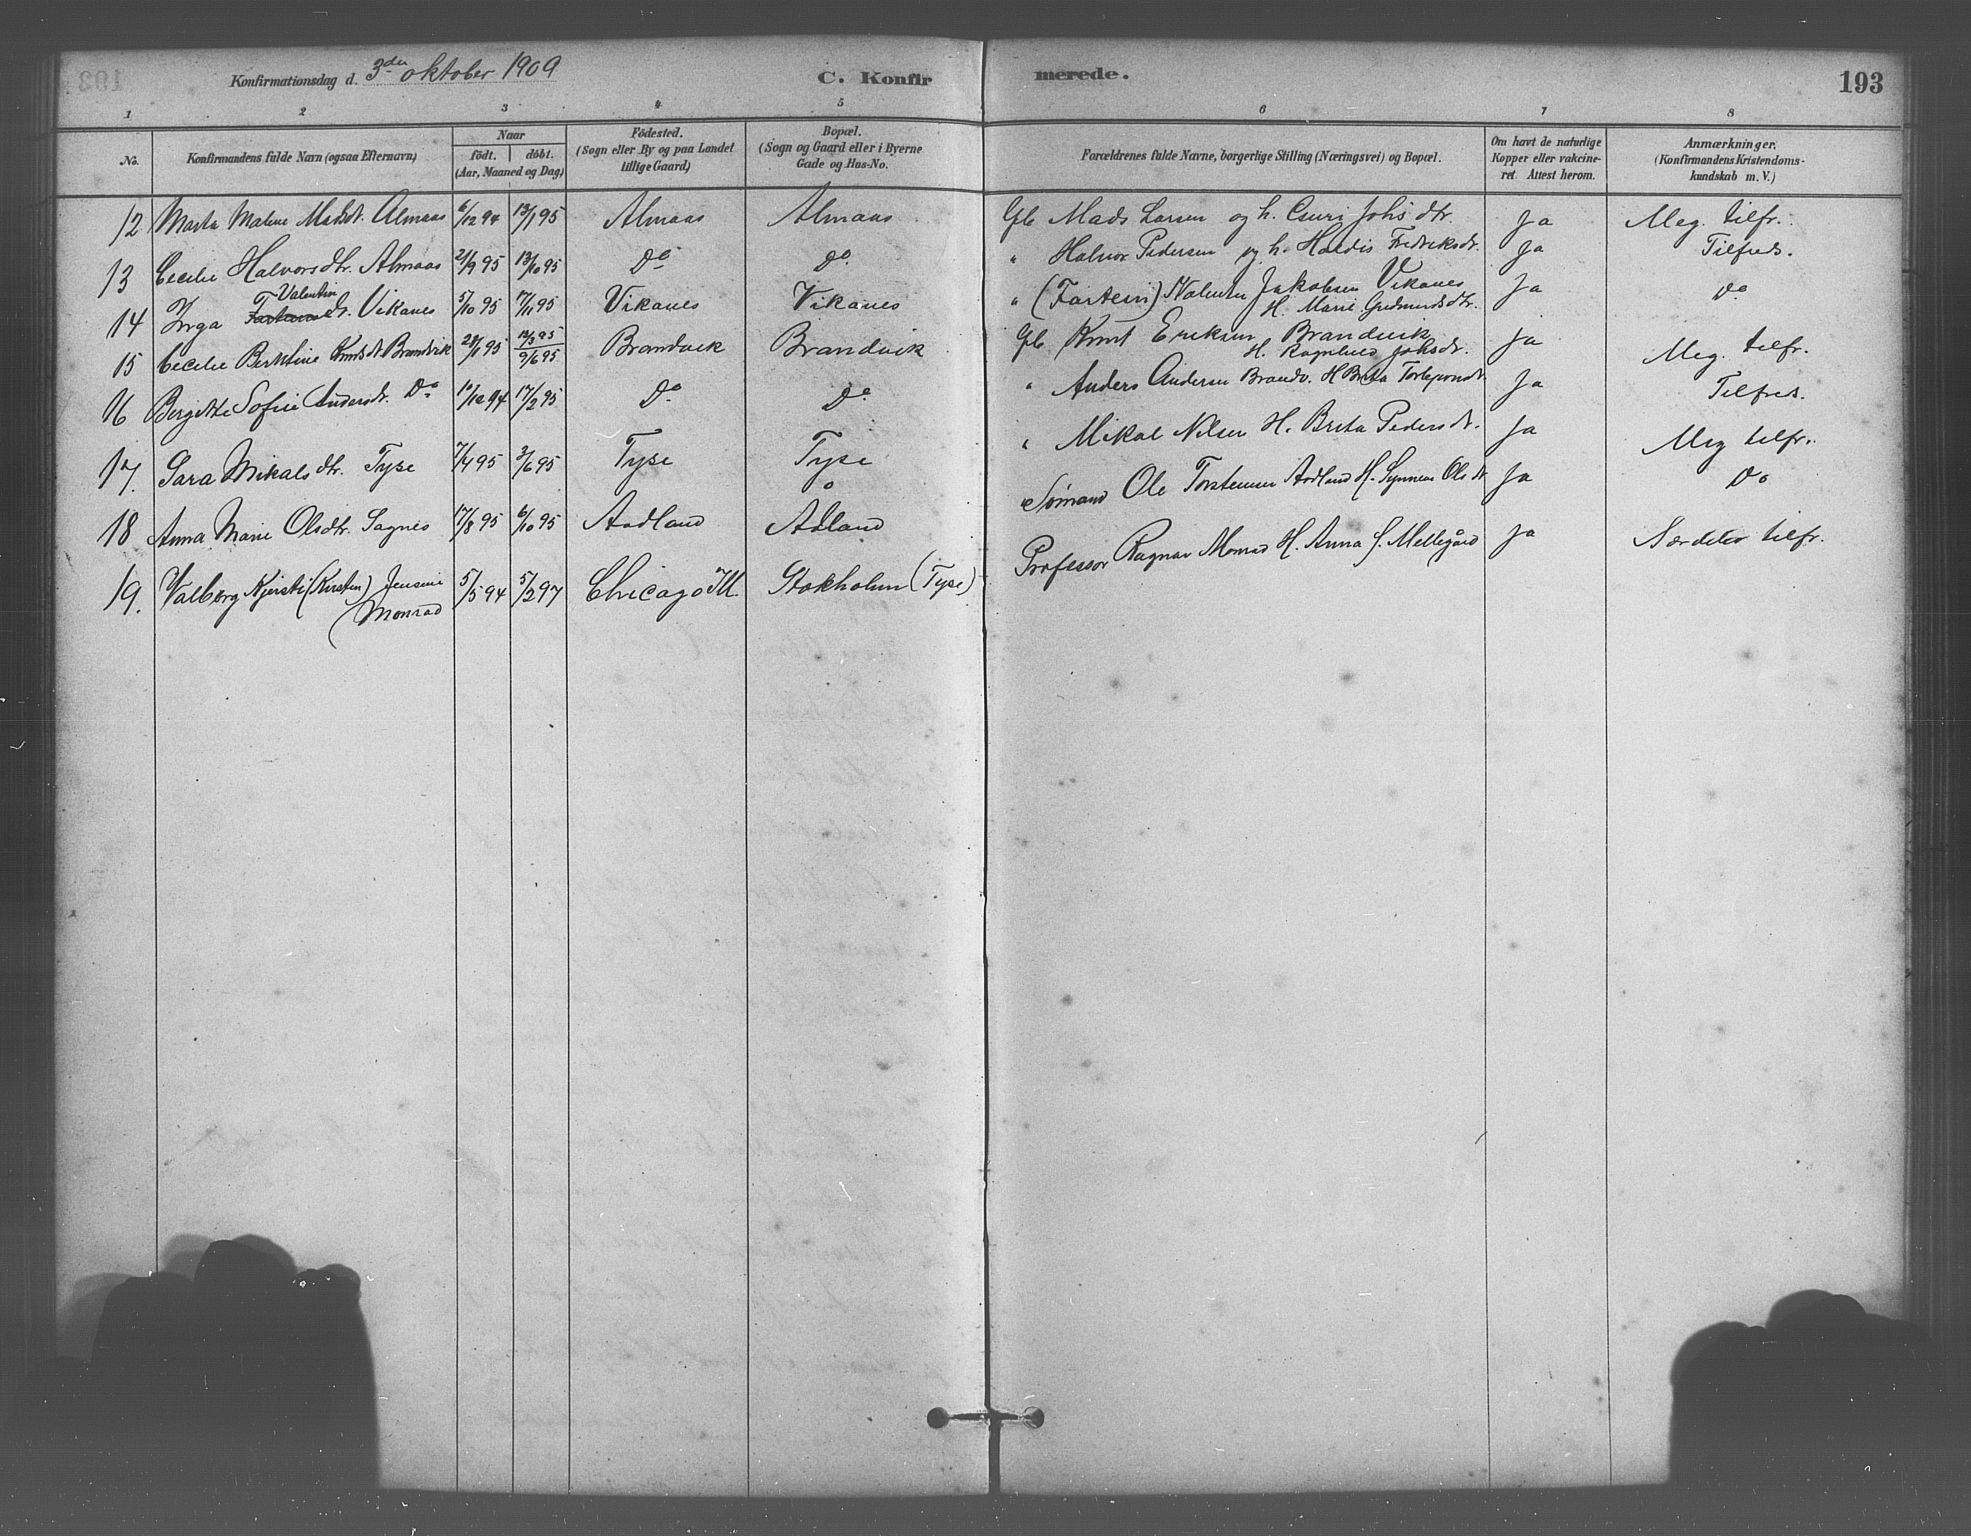 Konfirmationsdag d. 3die oktober 1909 C. Konfirmerede. 193
1 2 3 4 5 6 7 8
No.
Konfirmandens fulde Navn (ogsaa Efternavn)
Naar
födt. döbt.
(Aar, Maaned og Dag)
Födested.
(Sogn eller By og paa Landet
tillige Gaard)
Bopæl.
(Sogn og Gaard eller i Byerne
Gade og Hus-No.
Forældrenes fulde Navne, borgerlige Stilling (Næringsvei) og Bopæl.
Om havt de naturlige
Kopper eller vakcine-
ret. Attest herom.
Anmærkninger.
(Konfirmandens Kristendoms-
kundskab m. V.)
12 Marta Malene Madsdt. Almaas 6/12 94 13/1 95 Almaas Almaas Gb Mads Larsen og h. Guri Johsdtr. Ja Meg. tilfr.
13 Cecilie Halvorsdtr. Almaas 21/9 95 13/10 95 Do Do. " Halvor Pedersen og h. Haldis Fredriksdt. Ja Tilfreds.
14 Inga Valentindt. Vikanes 5/10 95 17/11 95 Vikanes Vikanes " (Fartein) Valentin Jakobsen Vikanes Ja Do
H. Marie Gudmundsdtr.
15 Cecilie Bertine Knutsdt Brandvik 28/1 95 17/3 95 Brandvik Brandvik Gb Knut Eriksen Brandvik Ja Meg. tilfr.
9/6 95 H. Ragnhild Johsdt.
16 Bergitte Sofie Andersdt. Do 10/12 94 17/2 95 Do Do " Anders Andersen Brandv. H Brita Torbjørndt. Ja Tilfreds.
17. Sara Mikalsdtr. Tyse 7/4 95 3/6 95 Tyse Tyse " Mikal Nilsen H. Brita Pedersdt. Ja Meg tilfr.
18 Anna Marie Olsdtr. Sagnes 17/8 95 6/10 95 Aadland Ådland " Sømand Ole Torstensen Aadland H. Synneva Olsdt Ja Do
19. Valborg Kjersti (Kirsten) Jensine 5/5 94 5/2 97 Chicago Ill. Stokholm (Tyse) Professor Ragnar Monrad H. Anna f. Mellegård Ja Særdeles tilfr.
(Monrad